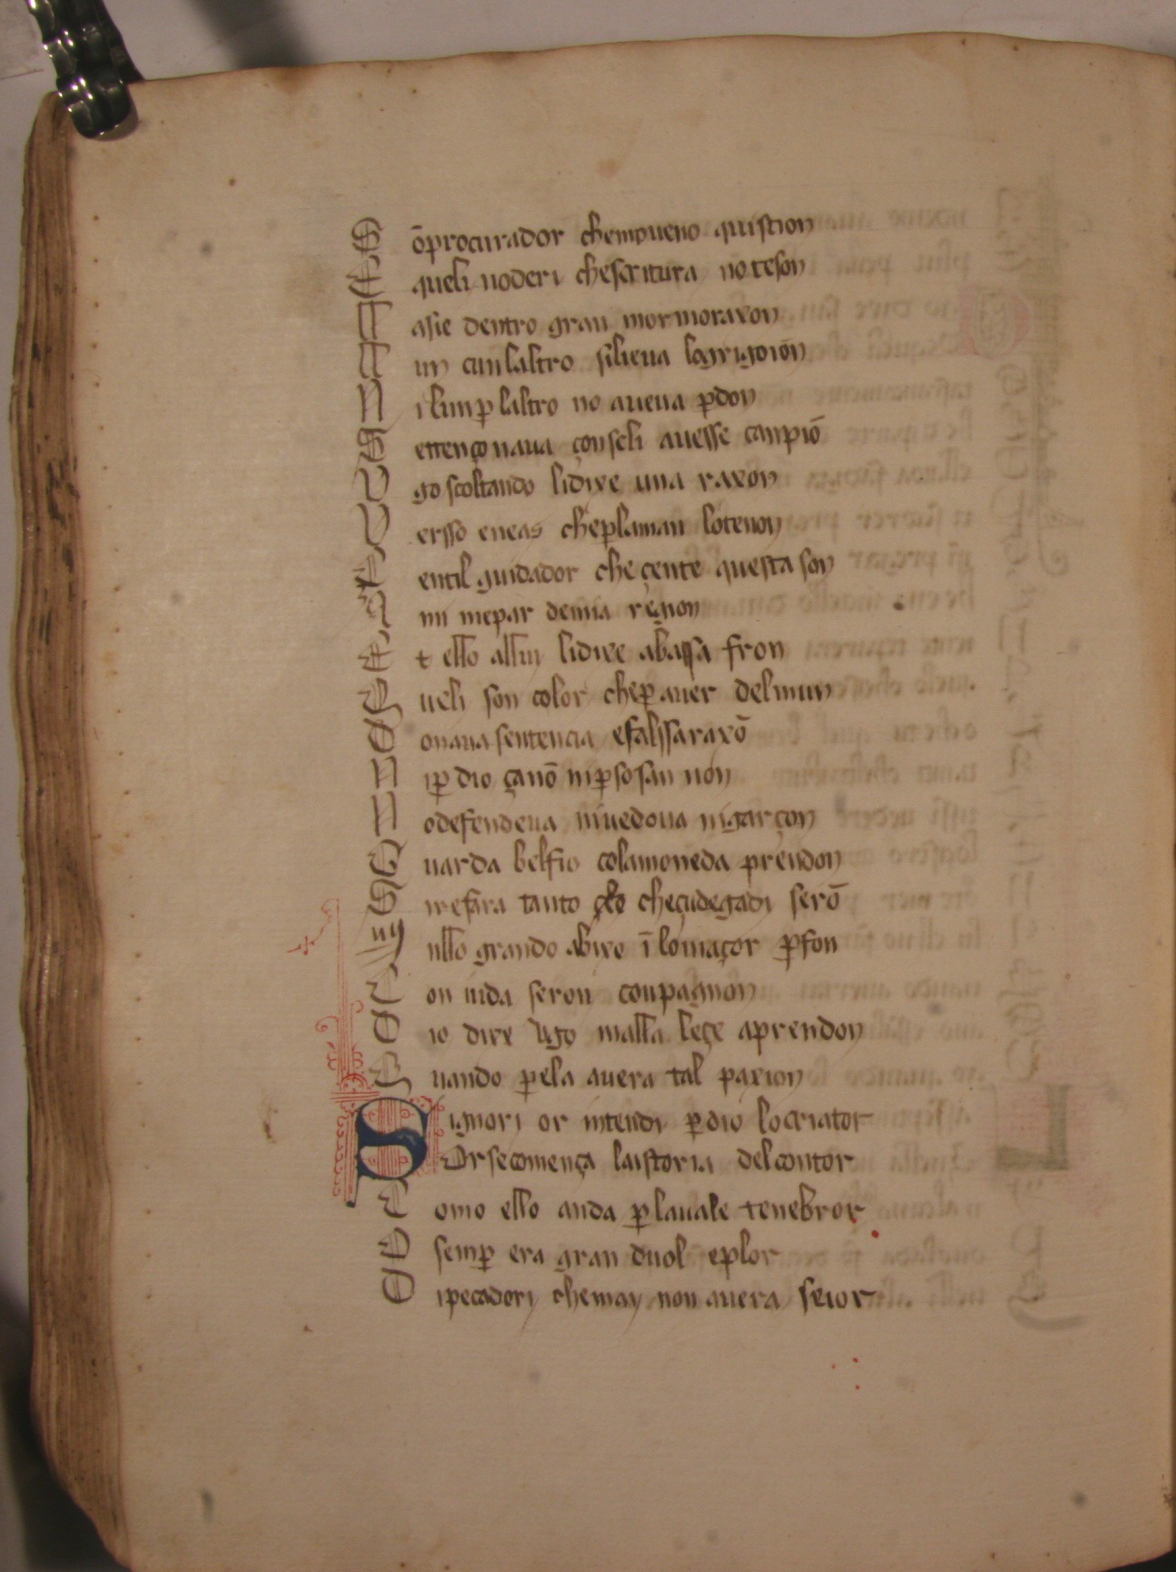 S õprocurador chemoueno quistion
E queli uoderi chescritura no teson
A asie dentro gran mormoraxon
A un cunlaltro silieua legrigoiõn
N ilunꝑ laltro no aueua ꝑdon
S entençonaua çonseli auesse canpiõ
V go scoltando lidixe una raxon
V ersso eneas cheꝑlaman lotenon
C entil guidador che çente questa son
A mi mepar demia regnon
E t ello allui lidixe abassa fron
Q ueli son color cheꝑ auer delmun
D onaua sentencia efalssaraxõ
N iꝑ dio çanõ niꝑ so san non
N odefendeua niuedoua nigarçon
G uarda belfio colamoneda prendon
S irefara tanto cheçudegadi serõ
N ello grando abixo ĩ lomaçor ꝑfon
C on iuda seron conpagnon
D io dixe Vgo malla leçe aprendon
Q uando ꝑela auera tal paxion
S ignori or intendi ꝑdio locriator
Orsecomença laistoria delcontor
C omo ello anda ꝑ lauale tenebror
O semꝑ era gran duol eplor
D ipecadori chemay non auera seior